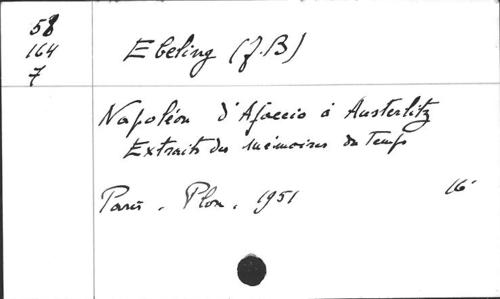 58
164
7
Ebeling (J.B)
Napoléon d'Ajaccio à Austerlitz
Extraits des mémoires du Temps
Paris. Plon. 1951 16°